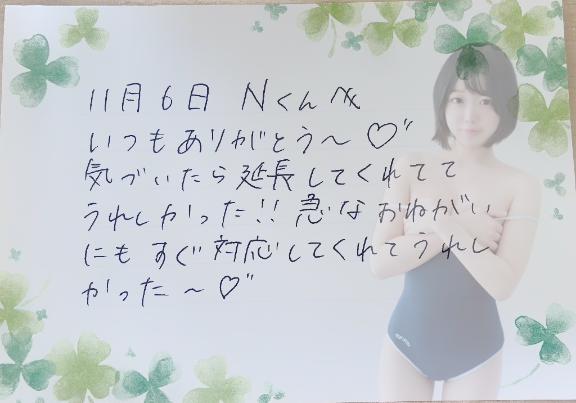 11月6日 Nくんへ
いつもありがとう〜♡"
気づいたら延長してくれてて
うれしかった!!急なおねがい
にもすぐ対応してくれてうれし
かった〜♡"